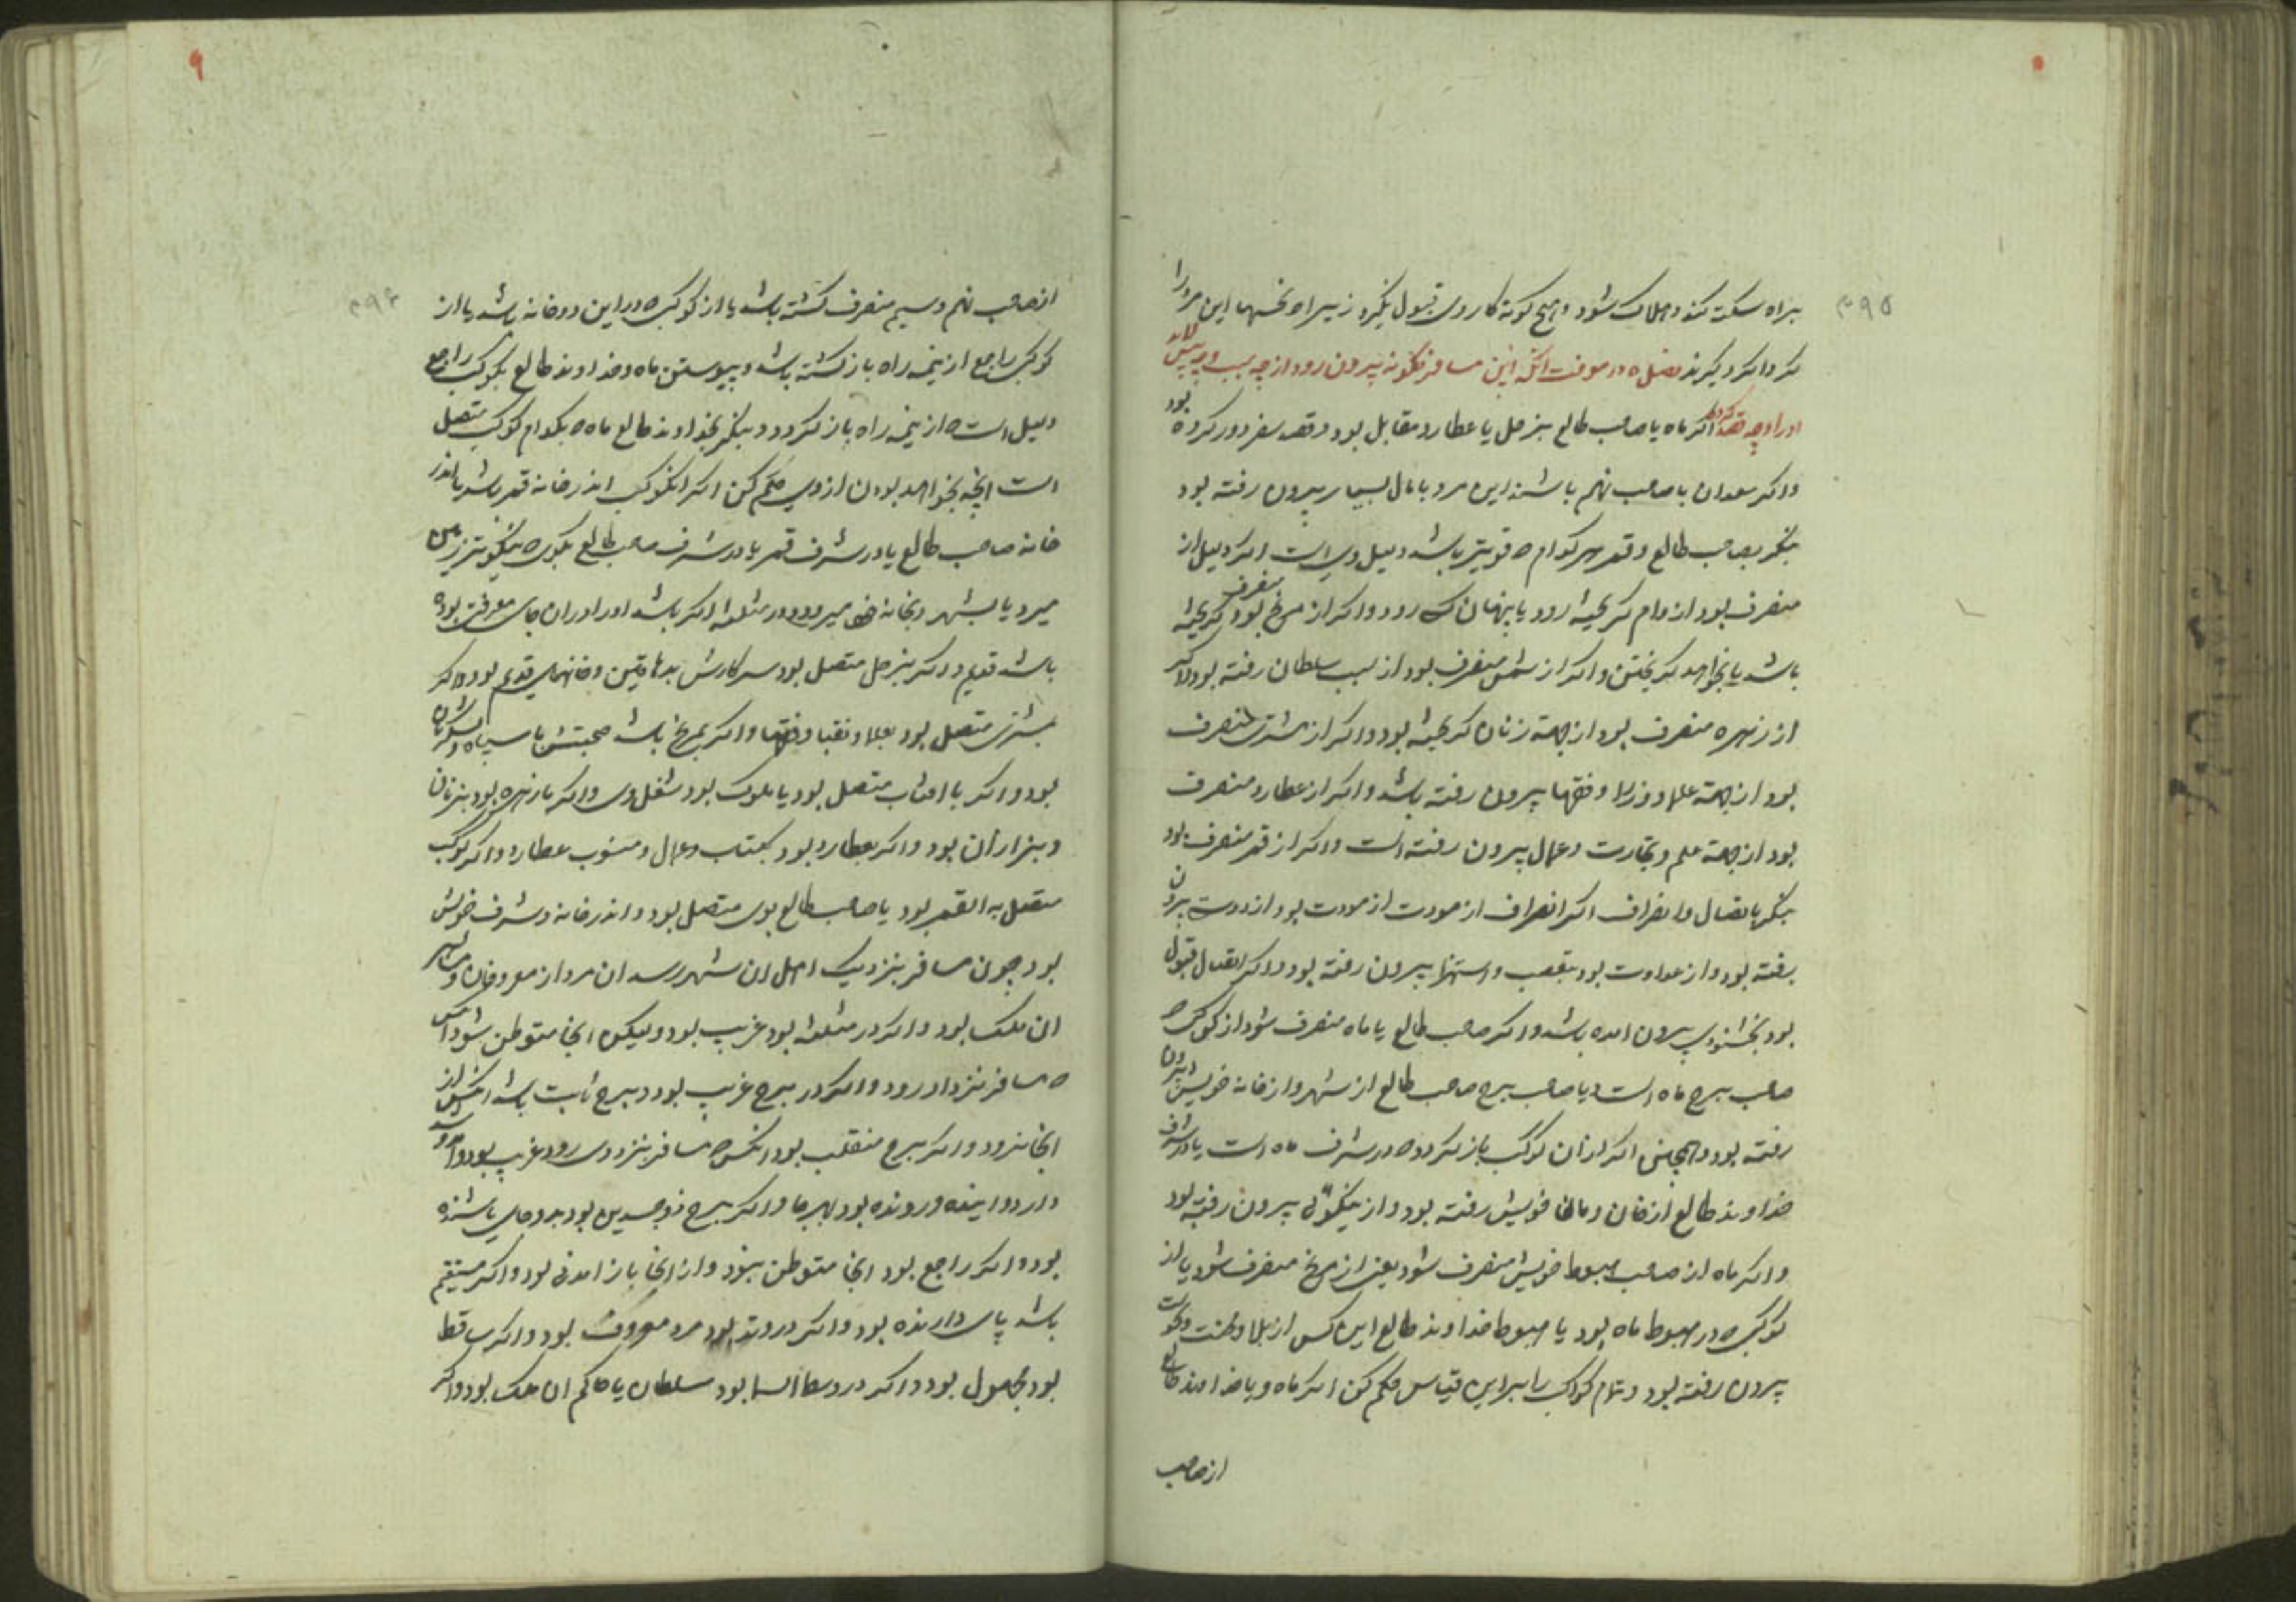 ۳۹۵
براه سکته کند و هلاک شود و هیچ کونه کار وی قبول نکیرد زیرا که نحسها این مرد را
کرد اکرد کیرند فصل در معرفت انکه این مسافر چکونه بیرون رود از چه سبب و چه پیش اید
او را و چه قصد کرده اکر ماه یا صاحب طالع بزحل یا عطارد مقابل بود و قصد سفر دور کرده بود
و اکر سعدان با صاحب نهم باشند این مرد با مال بسیار بیرون رفته بود
بنکر بصاحب طالع و قمر هر کدام که قویتر باشد دلیل وی است اکر دلیل از
منصرف بود از وام کریخته رود یا پنهان رود و اکر از مریخ منصرف بود کریخته
باشد یا بخواهد کریختن و اکر از شمس منصرف بود از سبب سلطان رفته بود و اکر
از زهره منصرف بود از جهة زنان کریخته بود و اکر از مشتری منصرف
بود از جهة علما و وزرا و فقها بیرون رفته باشد و اکر از عطارد منصرف
بود از جهة علم و تجارت و عمال بیرون رفته است و اکر از قمر منصرف بود
بنکر باتصال و انصراف اکر انصراف از مودت بود از دوست بیرون
رفته بود و از عداوت بود بتعصب و استهزا بیرون رفته بود و اکر اتصال قبول
بود بخشنودی بیرون امده باشد و اکر صاحب طالع یا ماه منصرف شود از کوکبی که
صاحب برج ماه است و یا صاحب برج صاحب طالع از شهر و از خانه خویش بیرون
رفته بود و همچنین اکر از ان کوکب باز کردد که در شرف ماه است یا در شرف
خداوند طالع از خان و مان خویش رفته بود و از نیکوئی بیرون رفته بود
و اکر ماه از صاحب هبوط خویش منصرف شود یعنی از مریخ منصرف شود یا از
کوکبی که در هبوط ماه بود یا هبوط خداوند طالع این کس از بلا و محنت و نحوست
بیرون رفته بود و تمام کواکب را بر این قیاس حکم کن اکر ماه و یا خداوند طالع
از صاحب
۳۹۶
از صاحب نهم و سیم منصرف کشته باشد یا از کوکبی که در این دو خانه باشد یا از
کوکبی راجع از نیمه راه باز کشته باشد و پیوستن ماه و خداوند طالع بکوکب راجع
دلیل است که از نیمه راه باز کردد و بنکر بخداوند طالع ماه که بکدام کوکب متصل
است انچه بخواهد بودن از وی حکم کن اکر انکوکب اندر خانه قمر باشد یا اندر
خانه صاحب طالع یا در شرف قمر یا در شرف صاحب طالع بکوی که بنیکوتر زمین
میرود یا بشهر و بخانه خود میرود و در مثلثه اکر باشد او را دران جای معرفت بوده
باشد قدیم و اکر بزحل متصل بود سر کارش بدهاقین و خانهای قدیم بود و اکر
بمشتری متصل بود بعلما و نقبا و فقها و اکر بمریخ باشد صحبتش با سپاه و لشکریان
بود و اکر با افتاب متصل بود با ملوک بود شغل وی و اکر با زهره بود بزنان
و بزازان بود و اکر بعطارد بود بکتاب و عمال و منسوب عطارد و اکر کوکب
متصل به القمر بود یا صاحب طالع بوی متصل بود و اندر خانه و شرف خویش
بود چون مسافر بنزدیک اهل ان شهر رسد ان مرد از معروفان و
ان ملک بود و اکر در مثلثه بود غریب بود و لیکن انجا متوطن شود انکس
که مسافر بنزد او رود و اکر در برج غریب بود و برج ثابت باشد انکس از
انجا نرود و اکر برج منقلب بود انکس که مسافر بنزد وی رود غریب بود و امد و شد
دارد و اینده و رونده بود بهر جا و اکر برج ذو جسدین بود بدو جای باشنده
بود و اکر راجع بود انجا متوطن نبود و از انجا باز امدنی بود و اکر مستقیم
باشد پای دارنده بود و اکر در وتد بود مرد معروف بود و اکر ساقط
بود مجهول بود و اکر در وسط السما بود سلطان یا حاکم ان ملک بود و اکر